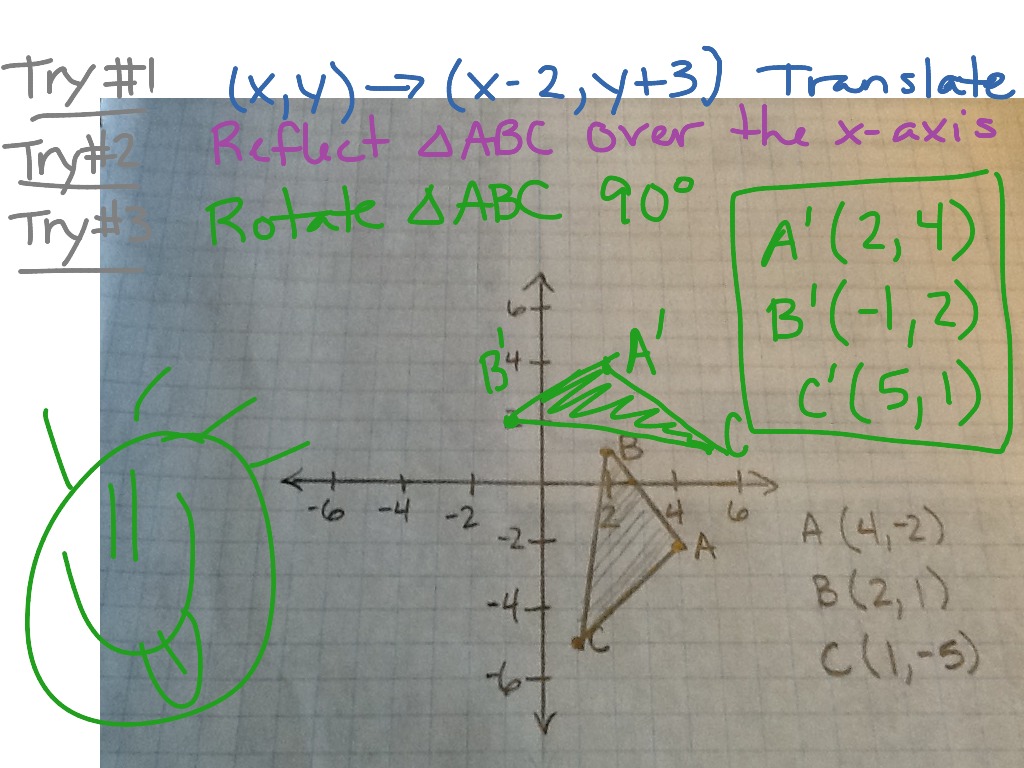 Try #1 (x,y) → (x-2, y+3) Translate
Try #2 Reflect △ABC over the x-axis
Try #3 Rotate △ABC 90°
A'(2,4)
B'(-1,2)
C'(5,1)
6
4
B' A'
C
B
-6 -4 -2 2 4 6
-2 A
-4
C
-6
A (4,-2)
B (2,1)
C (1,-5)